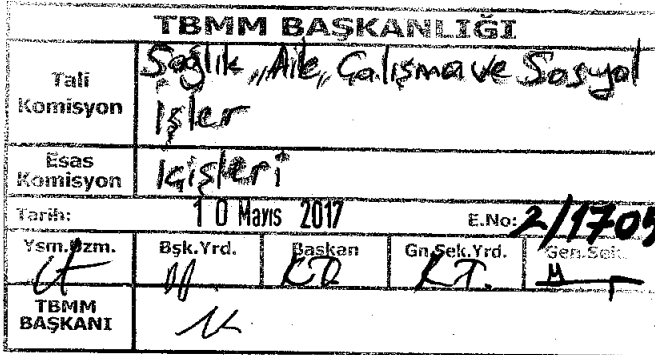 TBMM BAŞKANLIĞI
Tali Komisyon
Sağlık, Aile, Çalışma ve Sosyal
İşler
Esas Komisyon
İçişleri
Tarih: 10 Mayıs 2017 E.No: 2/1705
Ysm.Uzm. Bşk.Yrd. Başkan Gn.Sek.Yrd. Gen.Sek.
TBMM BAŞKANI